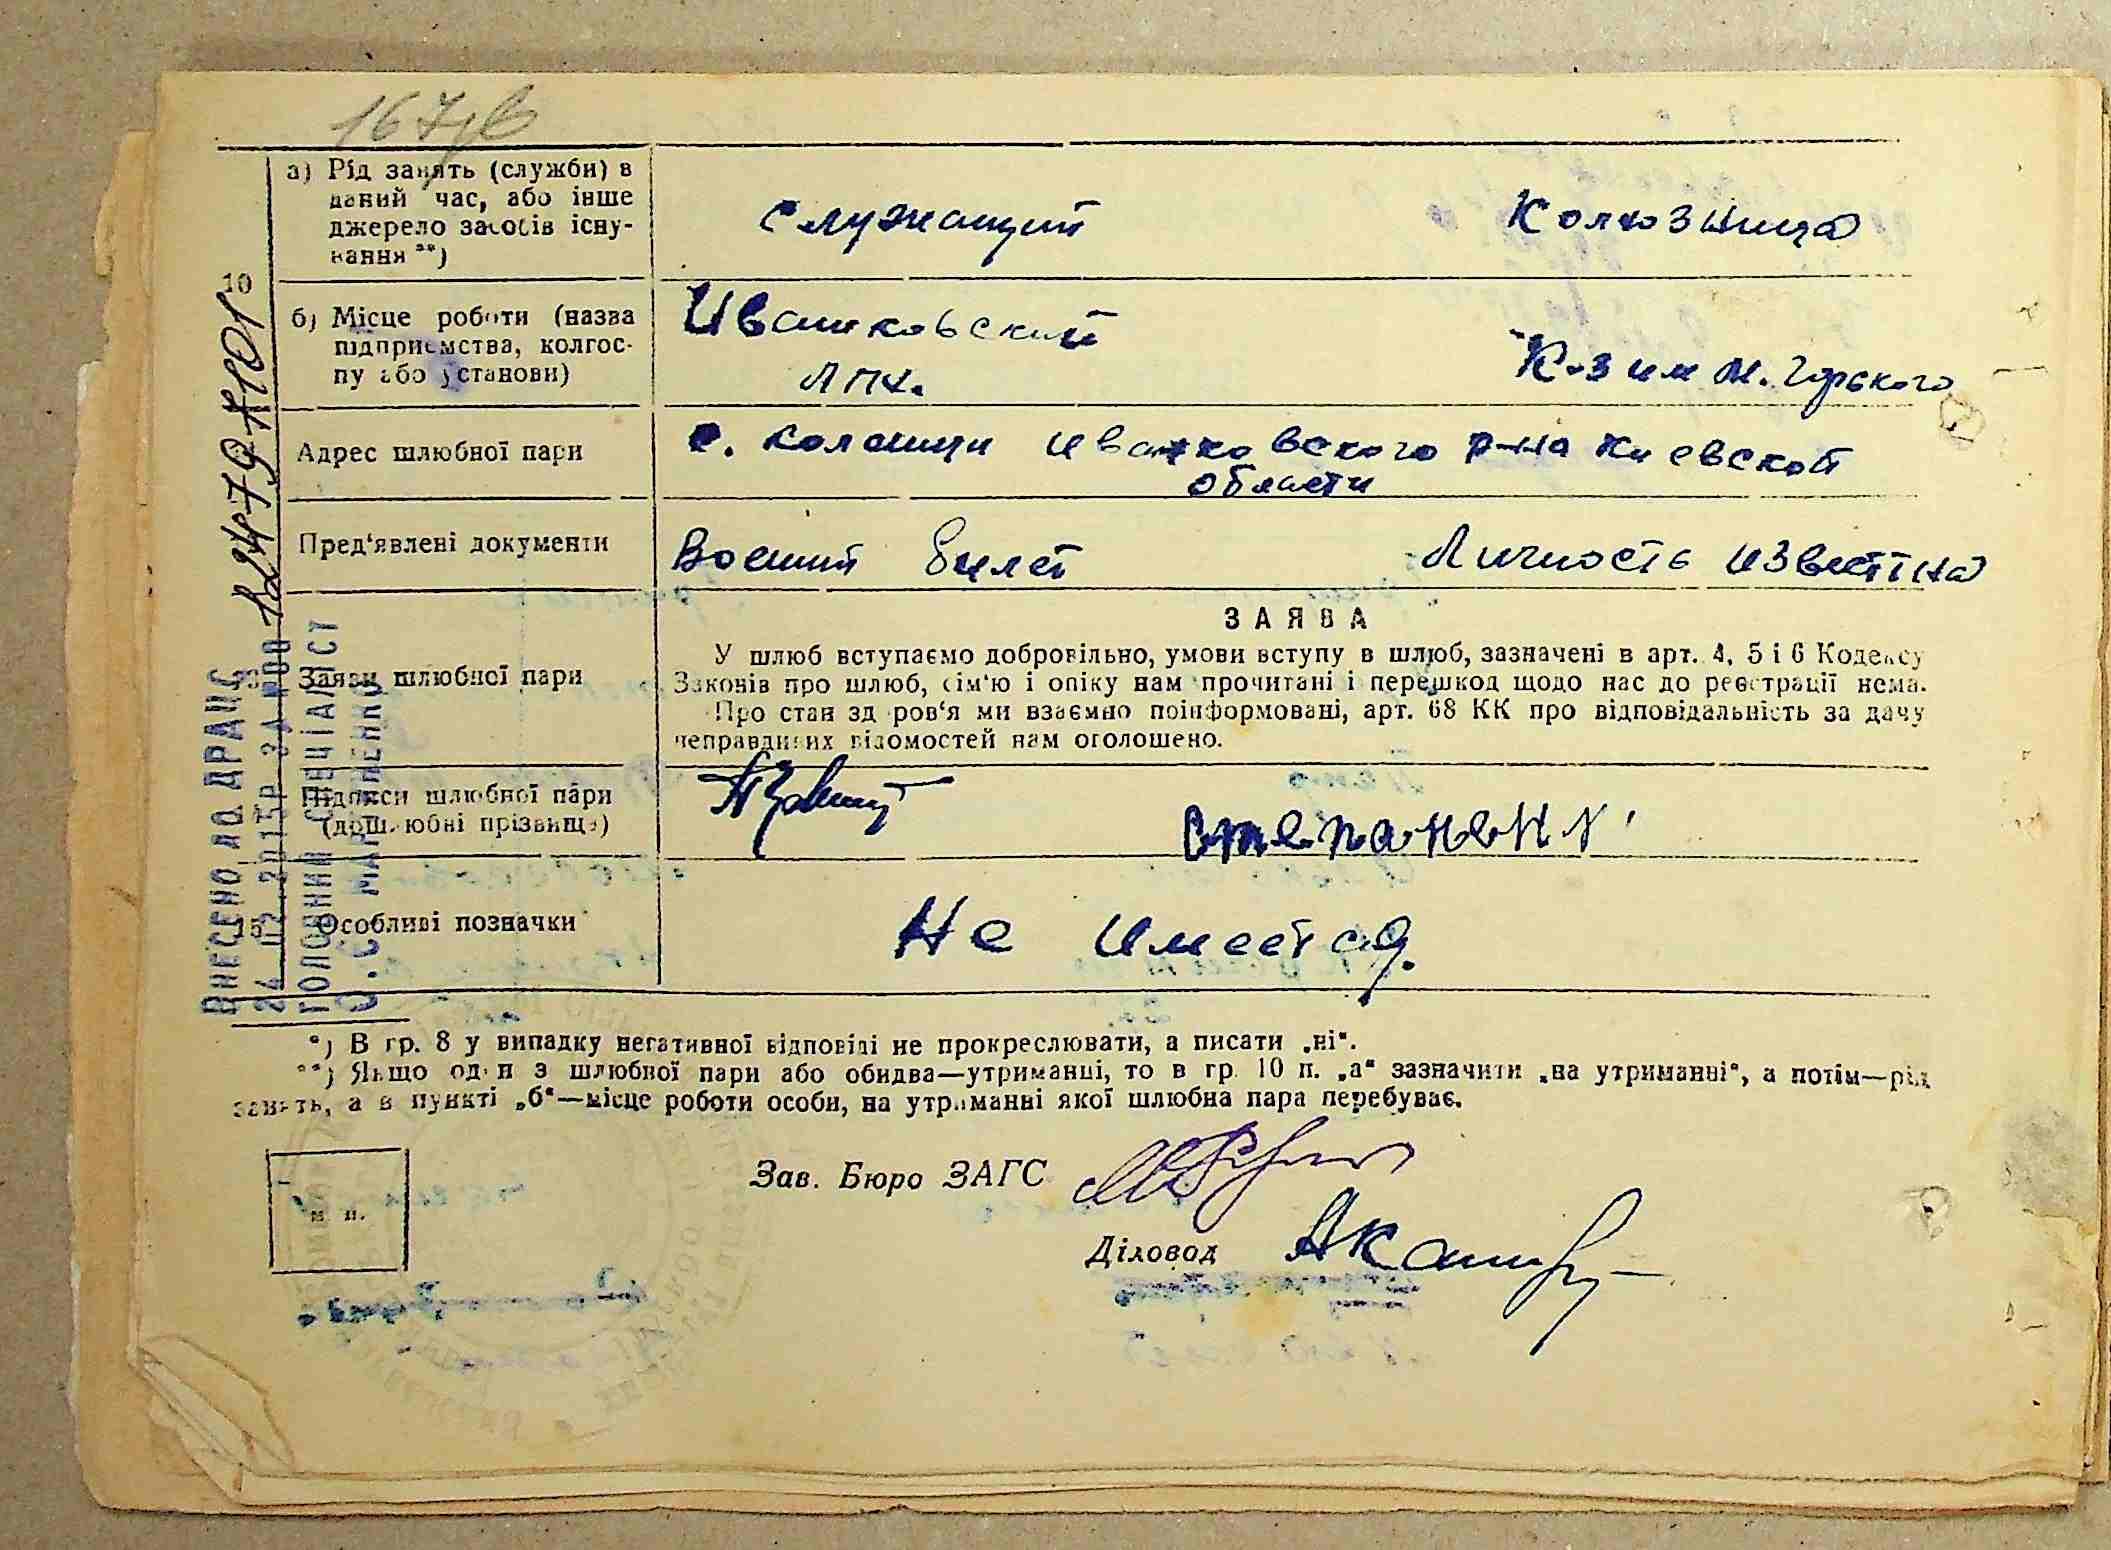 167 зв
а) Рід занять (служби) в
даний час, або інше
джерело засобів існу-
вання **)
служащий
Колхозница
10
б) Місце роботи (назва
підприємства, колгос-
пу або установи)
Иванковский
ЛПХ.
К-з им М. Горского
Адрес шлюбної пари
с. Коленци Иванковского р-на Киевской
области
Пред'явлені документи
Военный билет
Личность известна
Заяви шлюбної пари
ЗАЯВА
У шлюб вступаємо добровільно, умови вступу в шлюб, зазначені в арт. 4, 5 і 6 Кодексу
Законів про шлюб, сім'ю і опіку нам прочитані і перешкод щодо нас до реєстрації нема.
Про стан здоров'я ми взаємно поінформовані, арт. 68 КК про відповідальність за дачу
неправдивих відомостей нам оголошено.
Підписи шлюбної пари
(дошлюбні прізвища)
15
Особливі позначки
Не имеется.
*) В гр. 8 у випадку негативної відповіді не прокреслювати, а писати „ні“.
**) Якщо один з шлюбної пари або обидва—утриманці, то в гр. 10 п. „а“ зазначити „на утриманні“, а потім—рід
занять, а в пункті „б“—місце роботи особи, на утриманні якої шлюбна пара перебуває.
м. п.
Зав. Бюро ЗАГС
Діловод
ВНЕСЕНО ДО ДРАЦС
24.02.2015Р ЗА №00
ГОЛОВНИЙ СПЕЦІАЛІСТ
О.С МАРТИНЕНКО